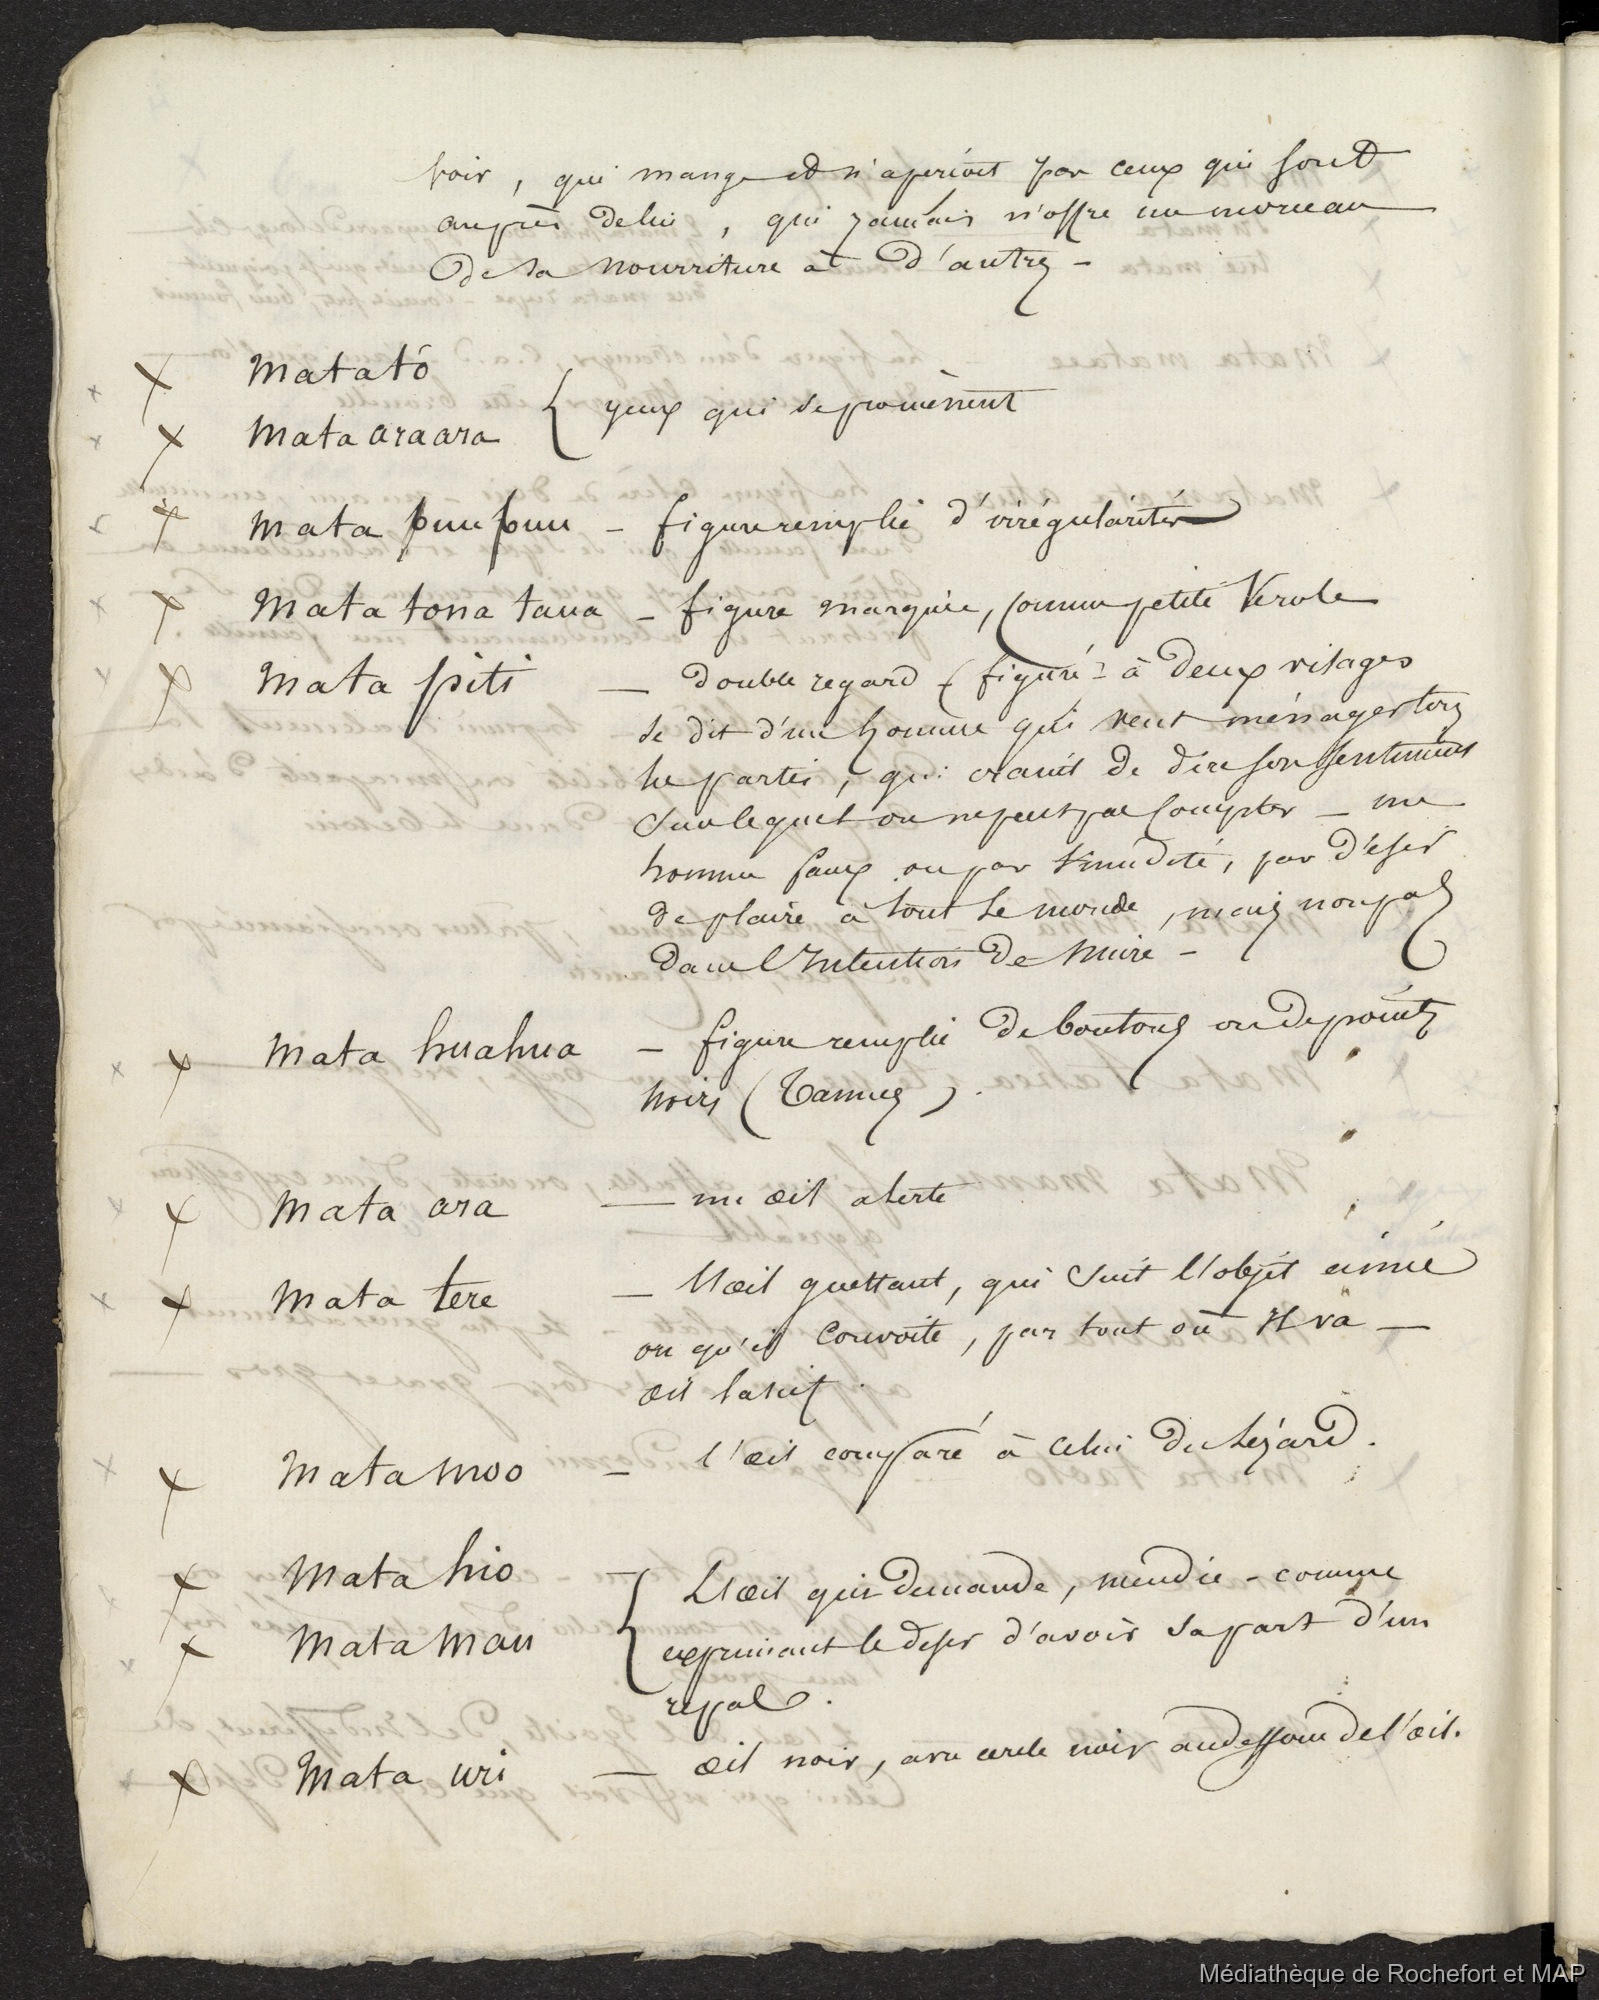 voir, qui mange et n'aperçoit pas ceux qui sont
auprès de lui, qui jamais n'offre un morceau
de sa nourriture à d'autres -
x Matató
x Mata araara { yeux qui se promènent
x Mata puupuu - figure remplie d'irrégularités
x Mata tona taua - figure marquée, comme petite Verole
x Mata piti - double regard (figuré - à deux visages
se dit d'un homme qui veut ménager tous
les partis, qui craint de dire son sentiment
sur lequel on ne peut pas compter - un
homme faux ou par timidité, par désir
de plaire à tout le monde, mais non pas
dans l'Intention de Nuire -
x Mata huahua - figure remplie de boutons ou de points
noirs (Tannes).
x Mata ara - un œil alerte
x Mata tere - L'œil guettant, qui suit l'objet aimé
ou qu'il convoite, par tout où Il va -
œil lascif.
x Mata moo - l'œil comparé à celui du Lézard.
x Mata hio - { L'œil qui demande, mendie - comme
x Mata mau exprimant le désir d'avoir sa part d'un
repas.
x Mata uri - œil noir, avec cercle noir au dessous de l'œil.
Médiathèque de Rochefort et MAP